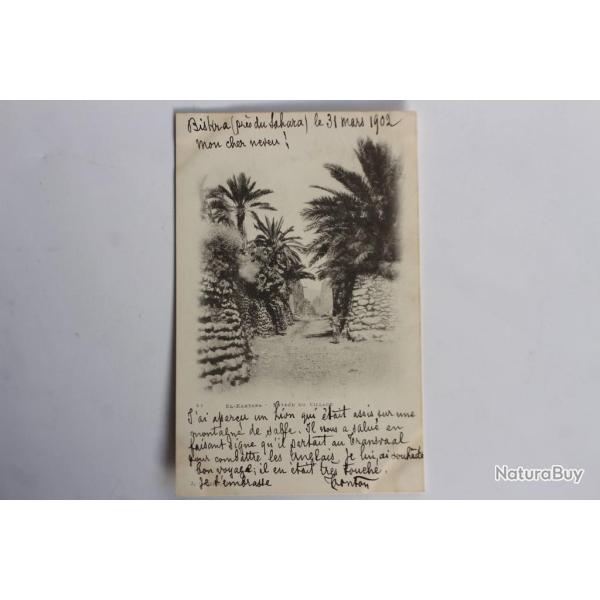 Biskra (près du Sahara) le 31 mars 1902
Mon cher neveu !
EL-KANTARA - ENTRÉE DU VILLAGE
J'ai aperçu un Lion qui était assis sur une
montagne de saffe. Il nous a salué en
faisant signe qu'il partait au Transvaal
pour combattre les Anglais. Je lui ai souhaité
bon voyage; il en était très touché.
Je t'embrasse
NaturaBuy